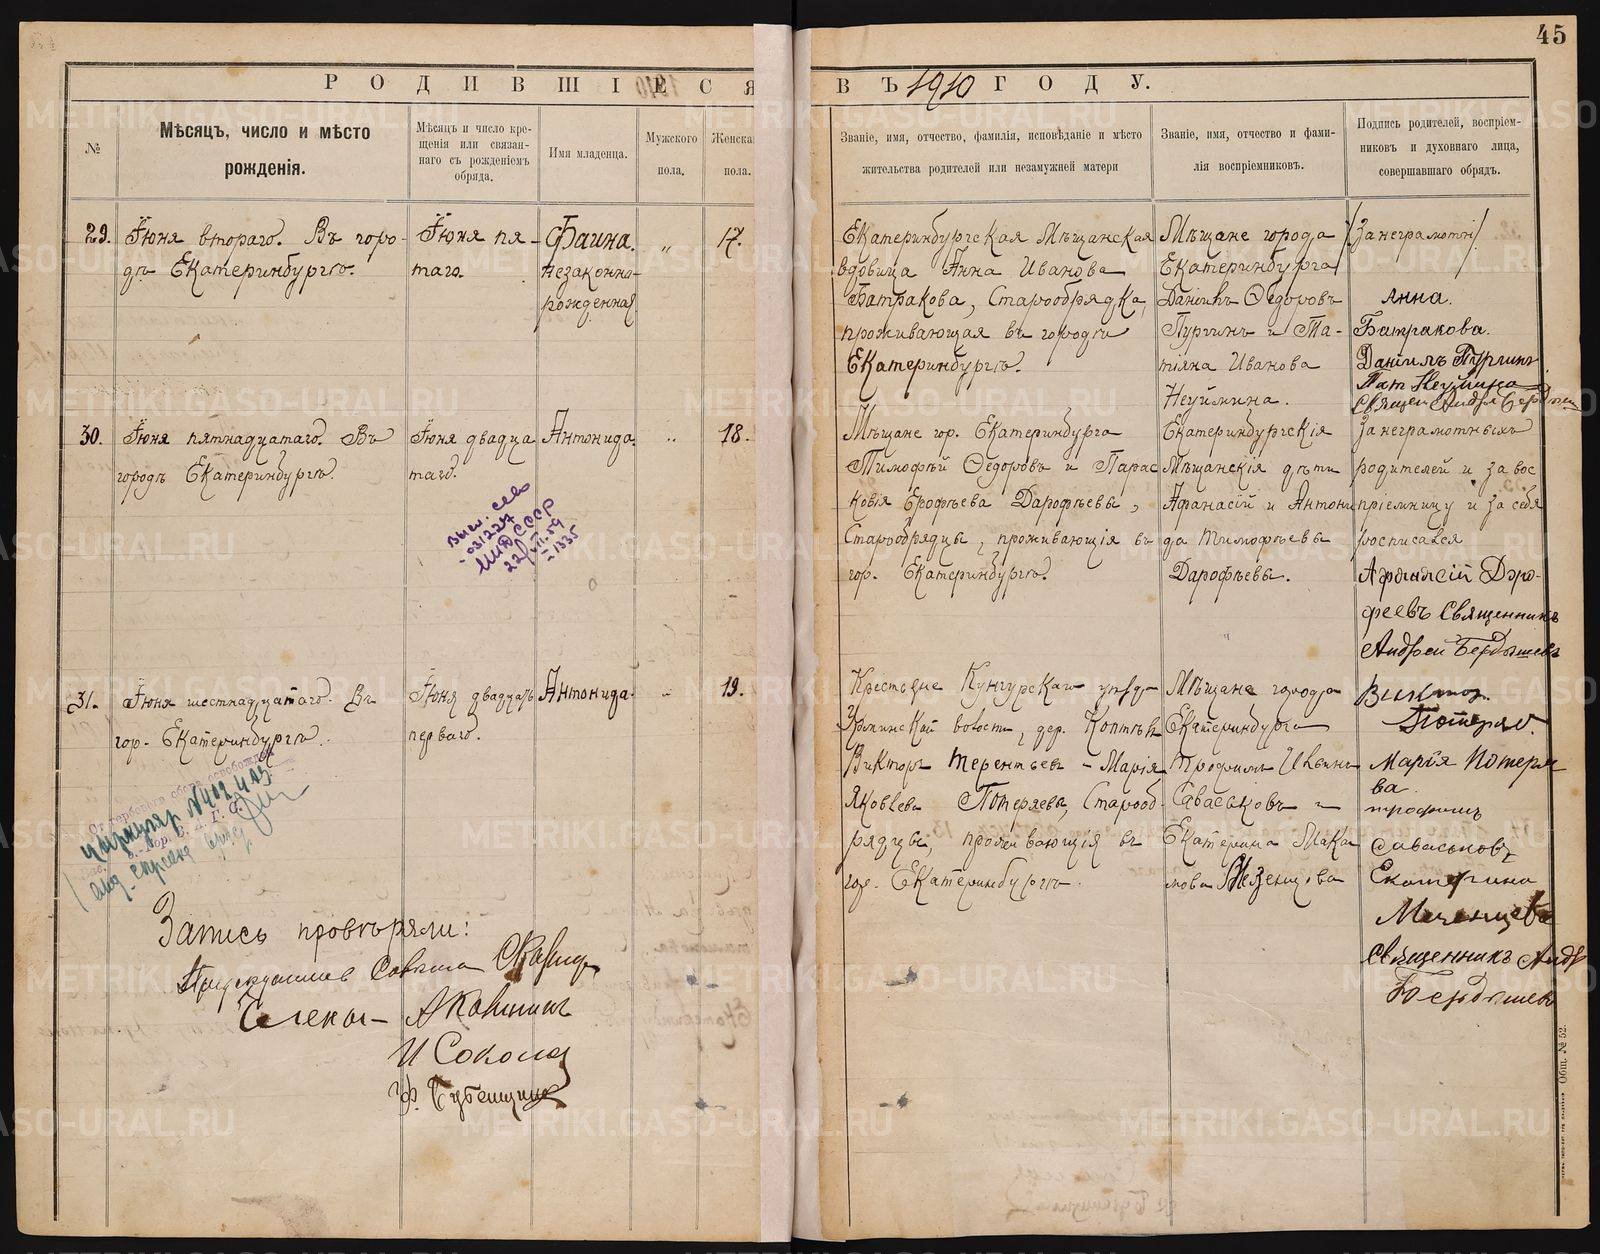 45
РОДИВШІЕСЯ ВЪ 1910 ГОДУ.
№
Мѣсяцъ, число и мѣсто
рожденія.
Мѣсяцъ и число кре-
щенія или связан-
наго съ рожденіемъ
обряда.
Имя младенца.
Мужского
пола.
Женска
пола.
Званіе, имя, отчество, фамилія, исповѣданіе и мѣсто
жительства родителей или незамужней матери
Званіе, имя, отчество и фами-
лія воспріемниковъ.
Подпись родителей, воспріем-
никовъ и духовнаго лица,
совершавшаго обрядъ.
29.
Іюня втораго. Въ горо-
дѣ Екатеринбургѣ.
Іюня пя-
таго.
Фаина.
незаконно-
рожденная.
„
17.
Екатеринбургская Мѣщанская
вдовица Анна Иванова
Батракова, Старообрядка,
проживающая въ городѣ
Екатеринбургѣ.
Мѣщане города
Екатеринбурга
Даніилъ Ѳедоровъ
Пургинъ и Та-
тіяна Иванова
Неуймина.
За неграмотн
Анна.
Батракова.
Даніилъ Пургинъ.
Тат Неуймина
Священ Андр Берд
30.
Іюня пятнадцатаго. Въ
городѣ Екатеринбургѣ.
Іюня двадца
таго.
Антонида.
„
18.
Мѣщане гор. Екатеринбурга
Тимофѣй Ѳедоровъ и Парас
ковія Ерофѣева Дарофѣевы,
Старообрядцы, проживающія въ
гор. Екатеринбургѣ.
Екатеринбургскія
Мѣщанскія дѣти
Афанасій и Антони
да Тимофѣевы
Дарофѣевы.
За неграмотныхъ
родителей и за вос
пріемницу и за себя
росписался
Афанасій Доро-
феевъ Священникъ
Андрей Бердышевъ
31.
Іюня шестнадцатаго. Въ
гор. Екатеринбургѣ.
Іюня двадцать
перваго.
Антонида.
„
19.
Крестьяне Кунгурскаго уѣзда
волости, дер.
Викторъ Терентьевъ - Марія
Яковлева Потеряевы, Старооб-
рядцы, проживающія въ
гор. Екатеринбургѣ.
Мѣщане города
Екатеринбурга
Трофимъ
Саваськовъ и
Екатерина Мака
рова
Виктор
Потеряев.
Марія Потеряе
ва.
трофимъ
саваськовъ
Екатерина
Мезенцева
Священникъ Андр
Бердышевъ
031227
СССР
Циркуляр №
Запись провѣряли:
Предсѣдатель Совѣта
Члены -
И Соколов
Общ. № 52.
METRIKI.GASO-URAL.RU